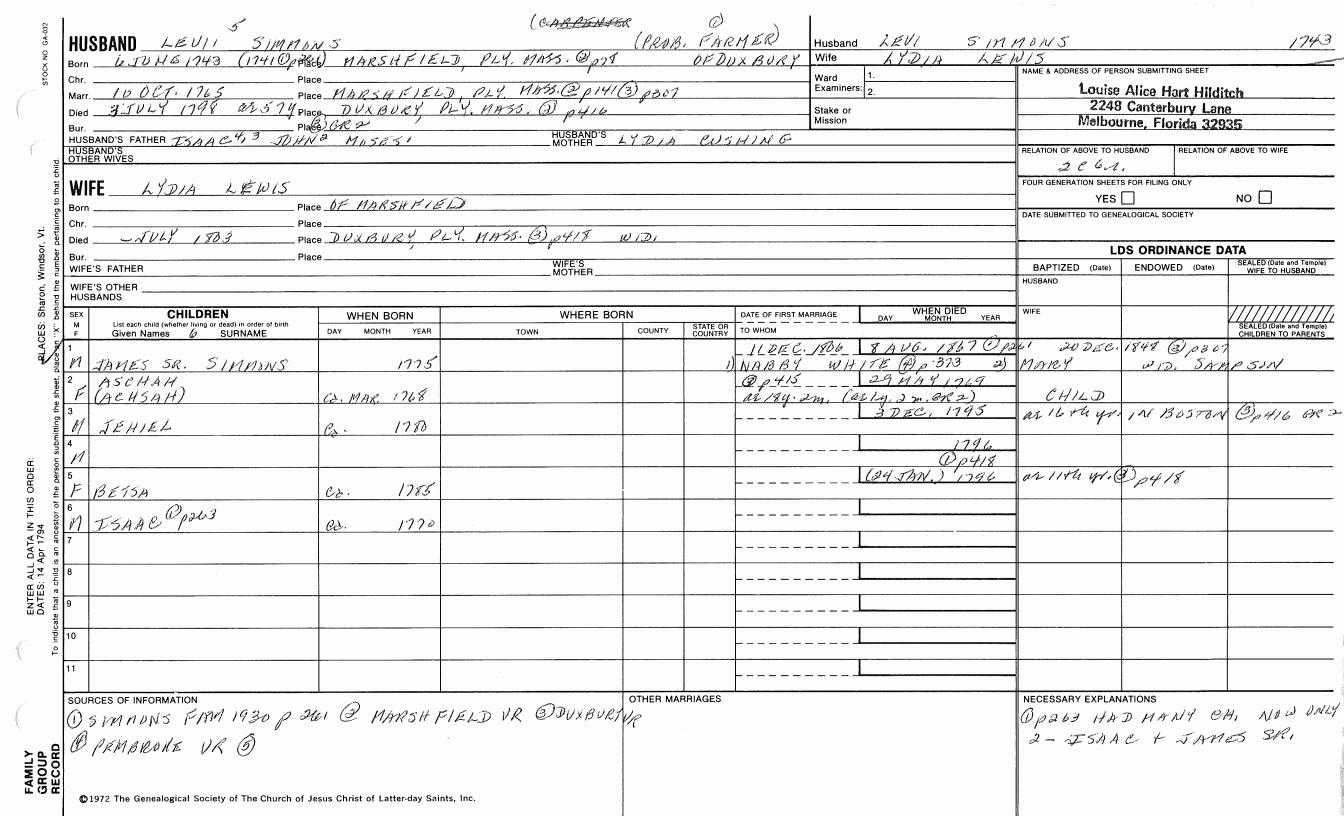 STOCK NO GA-032
5
(CARPENTER ①
HUSBAND LEVI SIMMONS (PROB. FARMER)
Born 6 JUNE 1743 (1741 ① p261) Place MARSHFIELD, PLY. MASS. ② p78 OF DUXBURY
Chr. Place
Marr. 10 OCT. 1765 Place MARSHFIELD, PLY. MASS. ② p141 ③ p307
Died 3 JULY 1798 ae 57y Place DUXBURY, PLY. MASS. ③ p416
Bur. Place ③ GR2
HUSBAND'S FATHER ISAAC 4, 3 JOHN 2 MOSES 1 HUSBAND'S MOTHER LYDIA CUSHING
HUSBAND'S OTHER WIVES
Husband LEVI SIMMONS 1743
Wife LYDIA LEWIS
Ward Examiners: 1.
2.
Stake or Mission
NAME & ADDRESS OF PERSON SUBMITTING SHEET
Louise Alice Hart Hilditch
2248 Canterbury Lane
Melbourne, Florida 32935
RELATION OF ABOVE TO HUSBAND RELATION OF ABOVE TO WIFE
2C6r.
FOUR GENERATION SHEETS FOR FILING ONLY
YES NO
DATE SUBMITTED TO GENEALOGICAL SOCIETY
WIFE LYDIA LEWIS
Born Place OF MARSHFIELD
Chr. Place
Died –JULY 1803 Place DUXBURY, PLY. MASS. ③ p418 WID.
Bur. Place
WIFE'S FATHER WIFE'S MOTHER
WIFE'S OTHER HUSBANDS
LDS ORDINANCE DATA
BAPTIZED (Date) ENDOWED (Date) SEALED (Date and Temple) WIFE TO HUSBAND
HUSBAND
WIFE
SEALED (Date and Temple) CHILDREN TO PARENTS
SEX M F CHILDREN WHEN BORN WHERE BORN DATE OF FIRST MARRIAGE WHEN DIED
List each child (whether living or dead) in order of birth
Given Names 6 SURNAME DAY MONTH YEAR TOWN COUNTY STATE OR COUNTRY TO WHOM DAY MONTH YEAR
1 11 DEC. 1806 8 AUG. 1867 ① p261 20 DEC. 1848 ③ p307
M JAMES SR. SIMMONS 1775 1) NABBY WHITE ④ p.373 2) MARY WID. SAMPSON
2 ASCHAH ③ p415 29 MAY 1769
F (ACHSAH) Ca. MAR. 1768 ae 1y. 2m. (ae 1y. 2m. GR2) CHILD
3 3 DEC. 1795 ae 16th yr. IN BOSTON ③ p416 GR2
M JEHIEL Ca. 1780
4 1796
M ① p418
5 (24 JAN.) 1796 ae 11th yr. ③ p418
F BETSA Ca. 1785
6
M ISAAC ① p263 Ca. 1770
7
8
9
10
11
SOURCES OF INFORMATION
① SIMMONS FAM 1930 p 261 ② MARSHFIELD VR ③ DUXBURY VR
④ PEMBROKE VR ⑤
OTHER MARRIAGES
NECESSARY EXPLANATIONS
① p263 HAD MANY CH. NOW ONLY
2 – ISAAC + JAMES SR.
©1972 The Genealogical Society of The Church of Jesus Christ of Latter-day Saints, Inc.
PLACES: Sharon, Windsor, Vt.
ENTER ALL DATA IN THIS ORDER:
DATES: 14 Apr 1794
To indicate that a child is an ancestor of the person submitting the sheet, place an "X" behind the number pertaining to that child
FAMILY
GROUP
RECORD